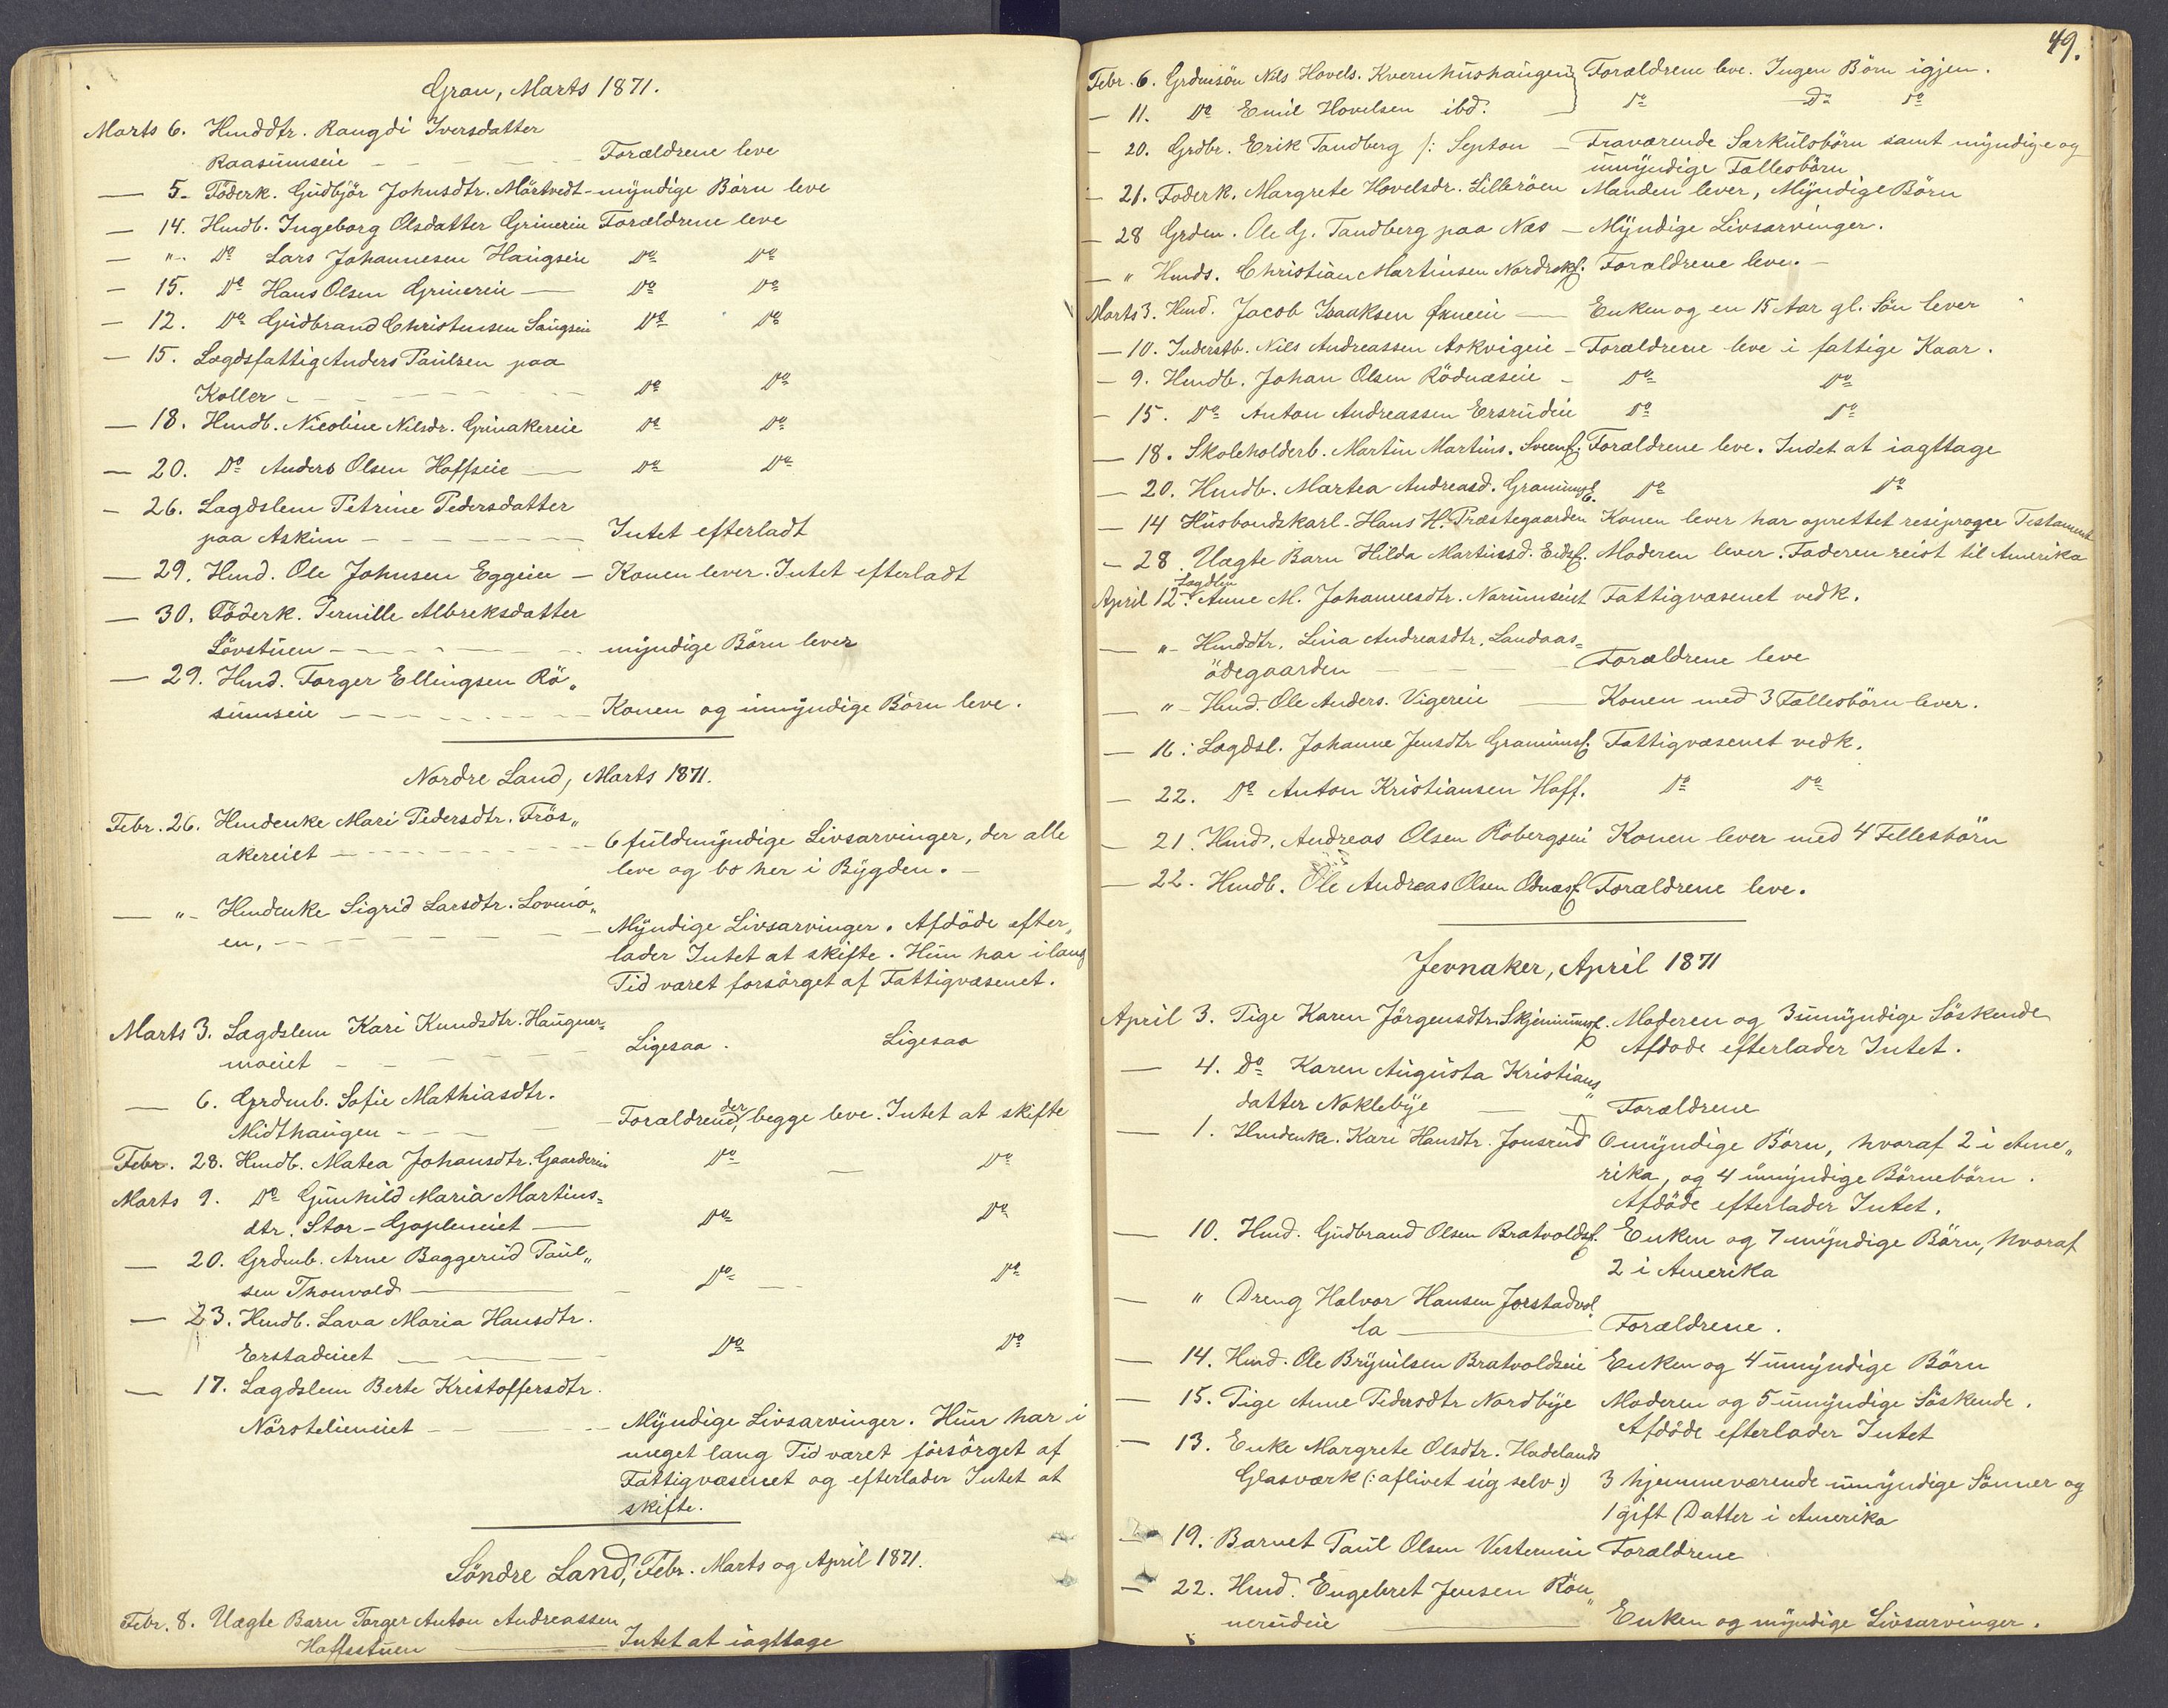 Gran, Marts 1871.
Marts 6. Husddtr. Rangdi Iversdatter
Raasumseie - - - - Forældrene leve
— 5. Föderk. Gudbjör Johnsdtr. Mörtvedt - myndige Börn leve
— 14. Husdb. Ingeborg Olsdatter Grinerein Forældrene leve
— " - Do Lars Johannesen Haugseie Do Do
— 15. Do Hans Olsen Grinereie — Do Do
— 12. Do Gudbrand Christensen Saugseie Do Do
— 15. Lægdsfattig Anders Paulsen paa
Koller - - - - - Do Do
— 18. Husdb. Nicoline Nilsdr. Grinakereie Do Do
— 20. Do Anders Olsen Hoffseie — Do Do
— 26. Lagdslem Petrine Pedersdatter
paa Askim - - - - - Intet efterladt
— 29. Husd. Ole Johnsen Eggeeie — Konen lever. Intet efterladt
— 30. Föderk. Pernille Albreksdatter
Lövstuen - - - - - myndige Börn lever
— 29. Husd. Torger Ellingsen Rö„
sumseie - - - - - Konen og umyndige Börn leve.
Nordre Land, Marts 1871.
Febr. 26. Husdenke Mari Pedersdtr. Frös„
akereiet - - - - - 6 fuldmyndige Livsarvinger, der alle
leve og bo her i Bygden. -
— " - Husdenke Sigrid Larsdtr. Lovmo„
en, - - - - - Myndige Livsarvinger. Afdöde efter„
lader Intet at skifte. Hun har i lang
Tid været forsörget af Fattigvæsenet.
Marts 3. Lægdslem Kari Knudsdtr. Haugner„
moeiet - - - - - Ligesaa. Ligesaa
— 6. Grdmb. Sofie Mathiasdtr.
Midthaugen - - - - Forældrene, der begge leve. Intet at skifte
Febr. 28. Husdb. Matea Johansdtr. Gaarderein Do — Do
Marts 9. Do Gunhild Maria Martins=
dtr. Stor-Gopleneiet — Do Do
— 20. Grdmb. Arne Baggerud Paul„
sen Thonvold — Do — Do
— 23. Husdb. Lava Maria Hansdtr.
Erstadeiet - - - Do Do
— 17. Lægdslem Berte Kristoffersdtr.
Nörstelieneiet - - - - Myndige Livsarvinger. Hun har i
meget lang Tid været forsörget af
Fattigvæsenet og efterlader Intet at
skifte.
Söndre Land, Febr. Marts og April 1871.
Febr. 8. Uægte Barn Torger Anton Andreassen
Hoffsstuen — Intet at iagttage
49.
Febr. 6. Grdmsön Nils Hovels. Kvernhushaugen } Forældrene leve. Ingen Börn igjen.
— 11. Do Emil Hovelsen ibd. } Do Do Do
— 20. Grdbr. Erik Tandberg /: Septon — Fraværende Særkulsbörn samt myndige og
umyndige Fællesbörn
— 21. Foderk. Margrete Hovelsdr. Lillbröen Manden lever, Myndige Börn
— 28 Grdm. Ole G. Tandberg paa Næs — Myndige Livsarvinger.
— " Husds. Christian Martinsen Nordrekf. Forældrene leve. -
Marts 3. Husd. Jacob Isaaksen — Enken og en 15 Aar gl. Sön lever
— 10. Inderstb. Nils Andreassen Askvigeie - Forældrene leve i fattige Kaar.
— 9. Husdb. Johan Olsen Rödnæseie - Do Do
— 15. Do Anton Andreassen Ersrudeie Do Do
— 18. Skoleholderb. Martin Martins. Forældrene leve. Intet at iagttage
— 20. Husdb. Martea Andreasd. Do Do
— 14 Husbondskarl - Hans H. Præstegaarden Konen lever har oprettet resiprogce Testament
— 28. Uægte Barn Hilda Martinsd. Moderen lever. Faderen reist til Amerika
April 12. Lægdslem Anne M. Johannesdtr. Narumseiet Fattigvæsenet vedk.
— " - Husddtr. Lina Andreasdtr. Landaas=
ödegaarden - - - - Forældrene leve
— " - Husd. Ole Anders. Vigereie — Konen med 3 Fællesbörn lever.
— 16: Lægdsl. Johanne Jensdtr Fattigvæsenet vedk.
— 22. Do Anton Kristiansen Hoff. Do Do
— 21. Husd. Andreas Olsen Robergseie Konen lever med 4 Fellesbörn
— 22. Husdb. Ole Andreas Olsen Odnæs Forældrene leve.
Jevnaker, April 1871
April 3. Pige Karen Jörgensdtr. Moderen og 3 umyndige Söskende
Afdöde efterlader Intet.
— 4. Do Karen Augusta Kristians„
datter Noklebye — Forældrene
— 1. Husdenke. Kari Hansdtr. Jonsrud 6 myndige Börn, hvoraf 2 i Ame„
rika, og 4 umyndige Börnebörn.
Afdöde efterlader Intet.
— 10. Husd. Gudbrand Olsen Bratvoldsf. Enken og 7 myndige Börn, hvoraf
2 i Amerika
— " Dreng Halvor Hansen Jorstadvol
la — Forældrene.
— 14. Husd. Ole Brynilsen Bratvoldseie Enken og 4 umyndige Börn
— 15. Pige Anne Pedersdtr Nordbye Moderen og 5 umyndige Söskende.
Afdöde efterlader Intet
— 13. Enke Margrete Olsdtr. Hadelands
Glasværk (: aflivet sig selv :) 3 hjemmeværende umyndige Sönner og
1 gift Datter i Amerika
— 19. Barnet Paul Olsen Vesterneie Forældrene
— 22. Husd. Engebret Jensen Rön„
nerudeie — Enken og myndige Livsarvinger.